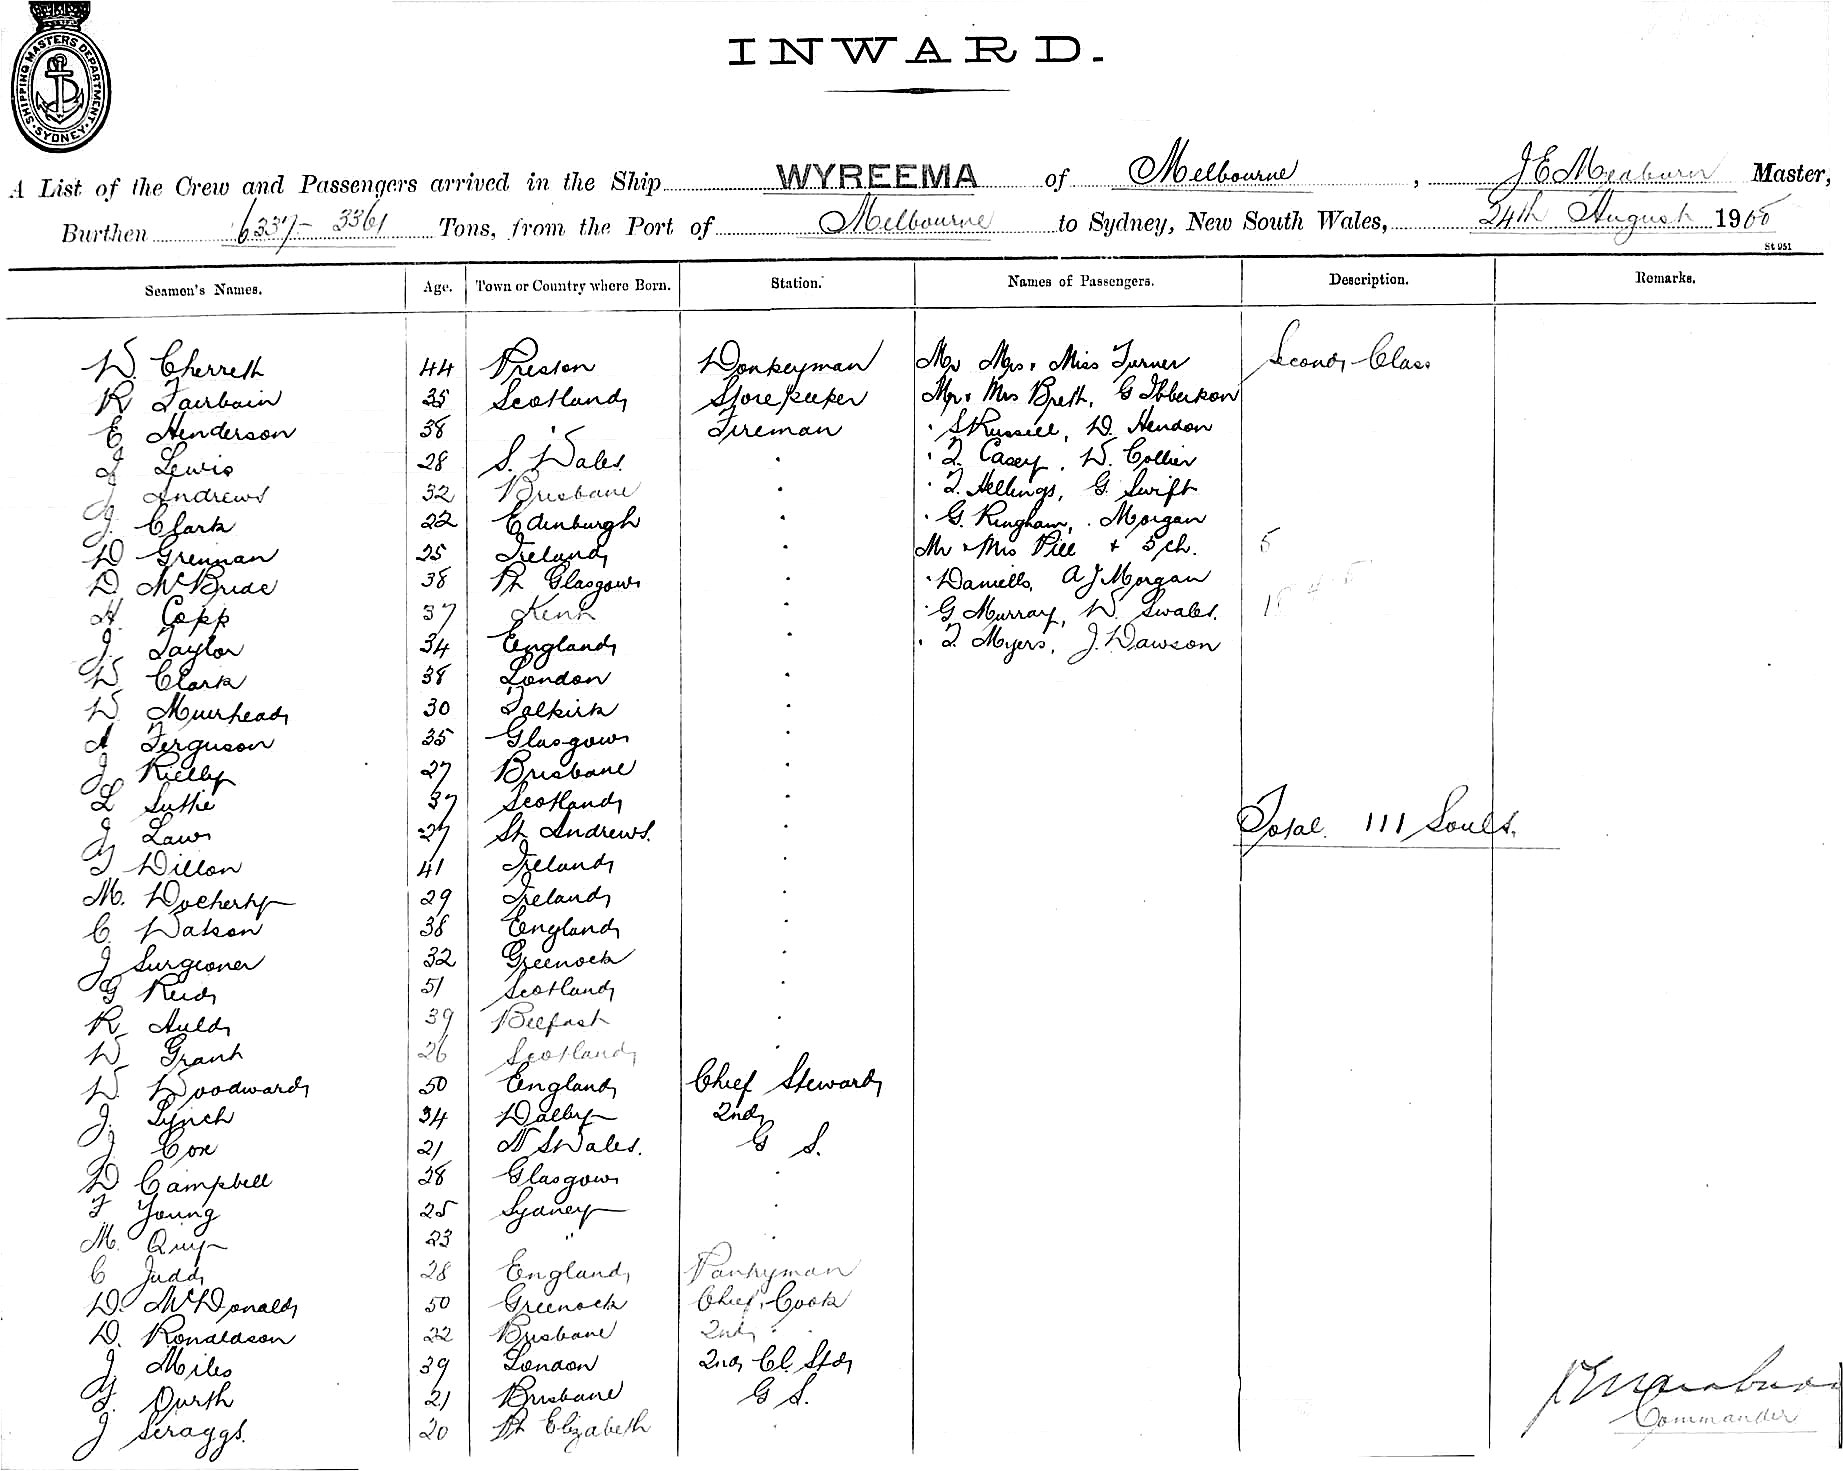 SHIPPING MASTERS DEPARTMENT
SYDNEY
INWARD.
A List of the Crew and Passengers arrived in the Ship WYREEMA of Melbourne, J E Meaburn Master,
Burthen 6337 - 3361 Tons, from the Port of Melbourne to Sydney, New South Wales, 24th August 1908
St 951
Seamen's Names. Age. Town or Country where Born. Station. Names of Passengers. Description. Remarks.
W. Cherreth 44 Preston Donkeyman Mr Mrs & Miss Turner Second Class
R Fairbain 35 Scotland Storekeeper Mr & Mrs Breth, G Ibberkon
E Henderson 38 " Fireman " S Russell, W. Hendon
J Lewis 28 S. Wales. " " T. Casey, W. Collier
J Andrews 32 Brisbane " " T. Hellings, G. Swift
J. Clark 22 Edinburgh " " G. Ringham, " Morgan
D Grennan 25 Ireland " Mr & Mrs Pill & 5 ch. 5
D McBride 38 Pt Glasgow " " Daniells, A J Morgan
H. Copp 37 Kent " " G Murray, W. Swales.
J. Taylor 34 England " " T. Myers, J. Dawson
W Clark 38 London "
W. Muirhead 30 Falkirk "
A Ferguson 35 Glasgow "
J Rielly 27 Brisbane "
L Suttie 37 Scotland "
J Law 27 St Andrews. " Total. 111 Souls.
T Dillon 41 Ireland "
M. Docherty 29 Ireland "
C. Watson 38 England "
J Surgeoner 32 Greenock "
G Reid 51 Scotland "
R Auld 39 Belfast "
W Grant 26 Scotland "
W. Woodward 50 England Chief Steward
J. Lynch 34 Dalby 2nd
J Cox 21 N S Wales. G S.
D Campbell 28 Glasgow "
F Young 25 Sydney "
M. Quy 23 " "
C Judd 28 England Pantryman
D. McDonald 50 Greenock Chief Cook
D. Ronaldson 22 Brisbane 2nd "
J Miles 39 London 2nd Cl Std
G. Durth 21 Brisbane G S.
J Scraggs. 20 Pt Elizabeth "
J E Meaburn
Commander